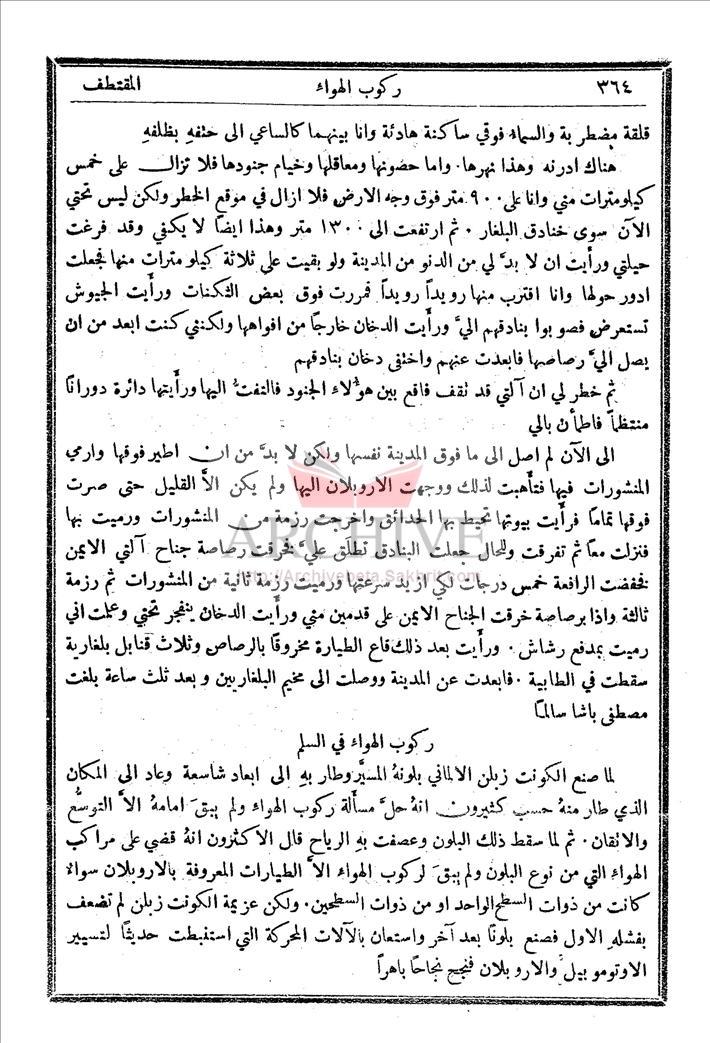 ٣٦٤ ركوب الهواء المقتطف
قلقة مضطربة والسماء فوقي ساكنة هادئة وانا بينهما كالساعي الى حتفهِ بظلفهِ
هناك ادرنه وهذا نهرها. واما حضونها ومعاقلها وخيام جنودها فلا تزال على خمس
كيلومترات مني وانا على ٩٠٠ متر فوق وجه الارض فلا ازال في موقع الخطر ولكن ليس تحتي
الآن سوى خنادق البلغار. ثم ارتفعت الى ١٣٠٠ متر وهذا ايضًا لا يكفي وقد فرغت
حيلتي ورأيت ان لا بدَّ لي من الدنو من المدينة ولو بقيت على ثلاثة كيلو مترات منها فجعلت
ادور حولها وانا اقترب منها رويداً رويداً فمررت فوق بعض الثكنات ورأيت الجيوش
تستعرض فصوبوا بنادقهم اليَّ ورأيت الدخان خارجًا من افواهها ولكنني كنت ابعد من ان
يصل اليَّ رصاصها فابعدت عنهم واختفى دخان بنادقهم
ثم خطر لي ان آلتي قد تقف فاقع بين هؤلاء الجنود فالتفتُّ اليها ورأيتها دائرة دورانًا
منتظماً فاطمأن بالي
الى الآن لم اصل الى ما فوق المدينة نفسها ولكن لا بدَّ من ان اطير فوقها وارمي
المنشورات فيها فتأهبت لذلك ووجهت الاروبلان اليها ولم يكن الاَّ القليل حتى صرت
فوقها تمامًا فرأيت بيوتها تحيط بها الحدائق واخرجت رزمة من المنشورات ورميت بها
ARCHIVE
فنزلت معًا ثم تفرقت وللحال جعلت البنادق تطلَق عليَّ فخرقت رصاصة جناح آلتي الايمن
http://Archivebeta.Sakhrit.com
فخفضت الرافعة خمس درجات لكي ازيد سرعتها ورميت رزمة ثانية من المنشورات ثم رزمة
ثالثة واذا برصاصة خرقت الجناح الايمن على قدمين مني ورأيت الدخان ينفجر تحتي وعلمت اني
رميت بمدفع رشاش. ورأيت بعد ذلك قاع الطيارة مخروقًا بالرصاص وثلاث قنابل بلغارية
سقطت في الطابية. فابعدت عن المدينة ووصلت الى مخيم البلغاريين وبعد ثلث ساعة بلغت
مصطفى باشا سالمًا
ركوب الهواء في السلم
لما صنع الكونت زبلن الالماني بلونهُ المسيَّر وطار بهِ الى ابعاد شاسعة وعاد الى المكان
الذي طار منهُ حسب كثيرون انهُ حلَّ مسألة ركوب الهواء ولم يبقَ امامهُ الاَّ التوسُّع
والاتقان. ثم لما سقط ذلك البلون وعصفت بهِ الرياح قال الاكثرون انهُ قضي على مراكب
الهواء التي من نوع البلون ولم يبقَ لركوب الهواء الاَّ الطيارات المعروفة بالاروبلان سواء
كانت من ذوات السطح الواحد او من ذوات السطحين. ولكن عزيمة الكونت زبلن لم تضعف
بفشلهِ الاول فصنع بلونًا بعد آخر واستعان بالآلات المحركة التي استنبطت حديثًا لتسيير
الاوتوموبيل والاروبلان فنجح نجاحًا باهراً